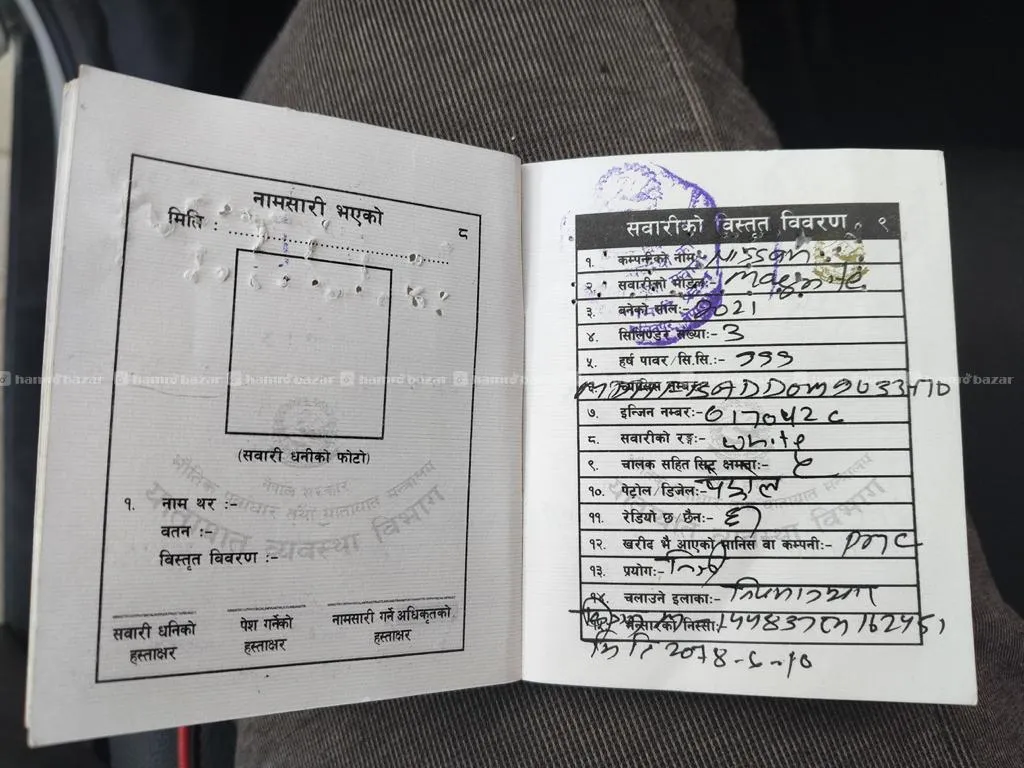 नामसारी भएको
८
मिति :
(सवारी धनीको फोटो)
नेपाल सरकार
भौतिक पूर्वाधार तथा यातायात मन्त्रालय
यातायात व्यवस्था विभाग
१. नाम थर :-
वतन :-
विस्तृत विवरण :-
सवारी धनिको हस्ताक्षर
पेश गर्नेको हस्ताक्षर
नामसारी गर्ने अधिकृतको हस्ताक्षर
सवारीको विस्तृत विवरण ९
१. कम्पनीको नाम:- Nissan
२. सवारीको मोडेल:- Magnite
३. बनेको साल:- 2021
४. सिलिण्डर संख्या:- 3
५. हर्ष पावर/सि.सि.:- 999
७. इन्जिन नम्बर:-
८. सवारीको रङ्ग:- White
९. चालक सहित सिट क्षमता:- ५
१०. पेट्रोल/डिजेल:- पेट्रोल
११. रेडियो छ/छैन:- छ
१२. खरीद भै आएको मानिस वा कम्पनी:- PMC
१३. प्रयोग:- निजी
१४. चलाउने इलाका:-
१५. भन्सारको निस्सा:-
मिति 2078-6-10
hamrobazar hamrobazar hamrobazar hamrobazar hamrobazar hamrobazar hamrobazar